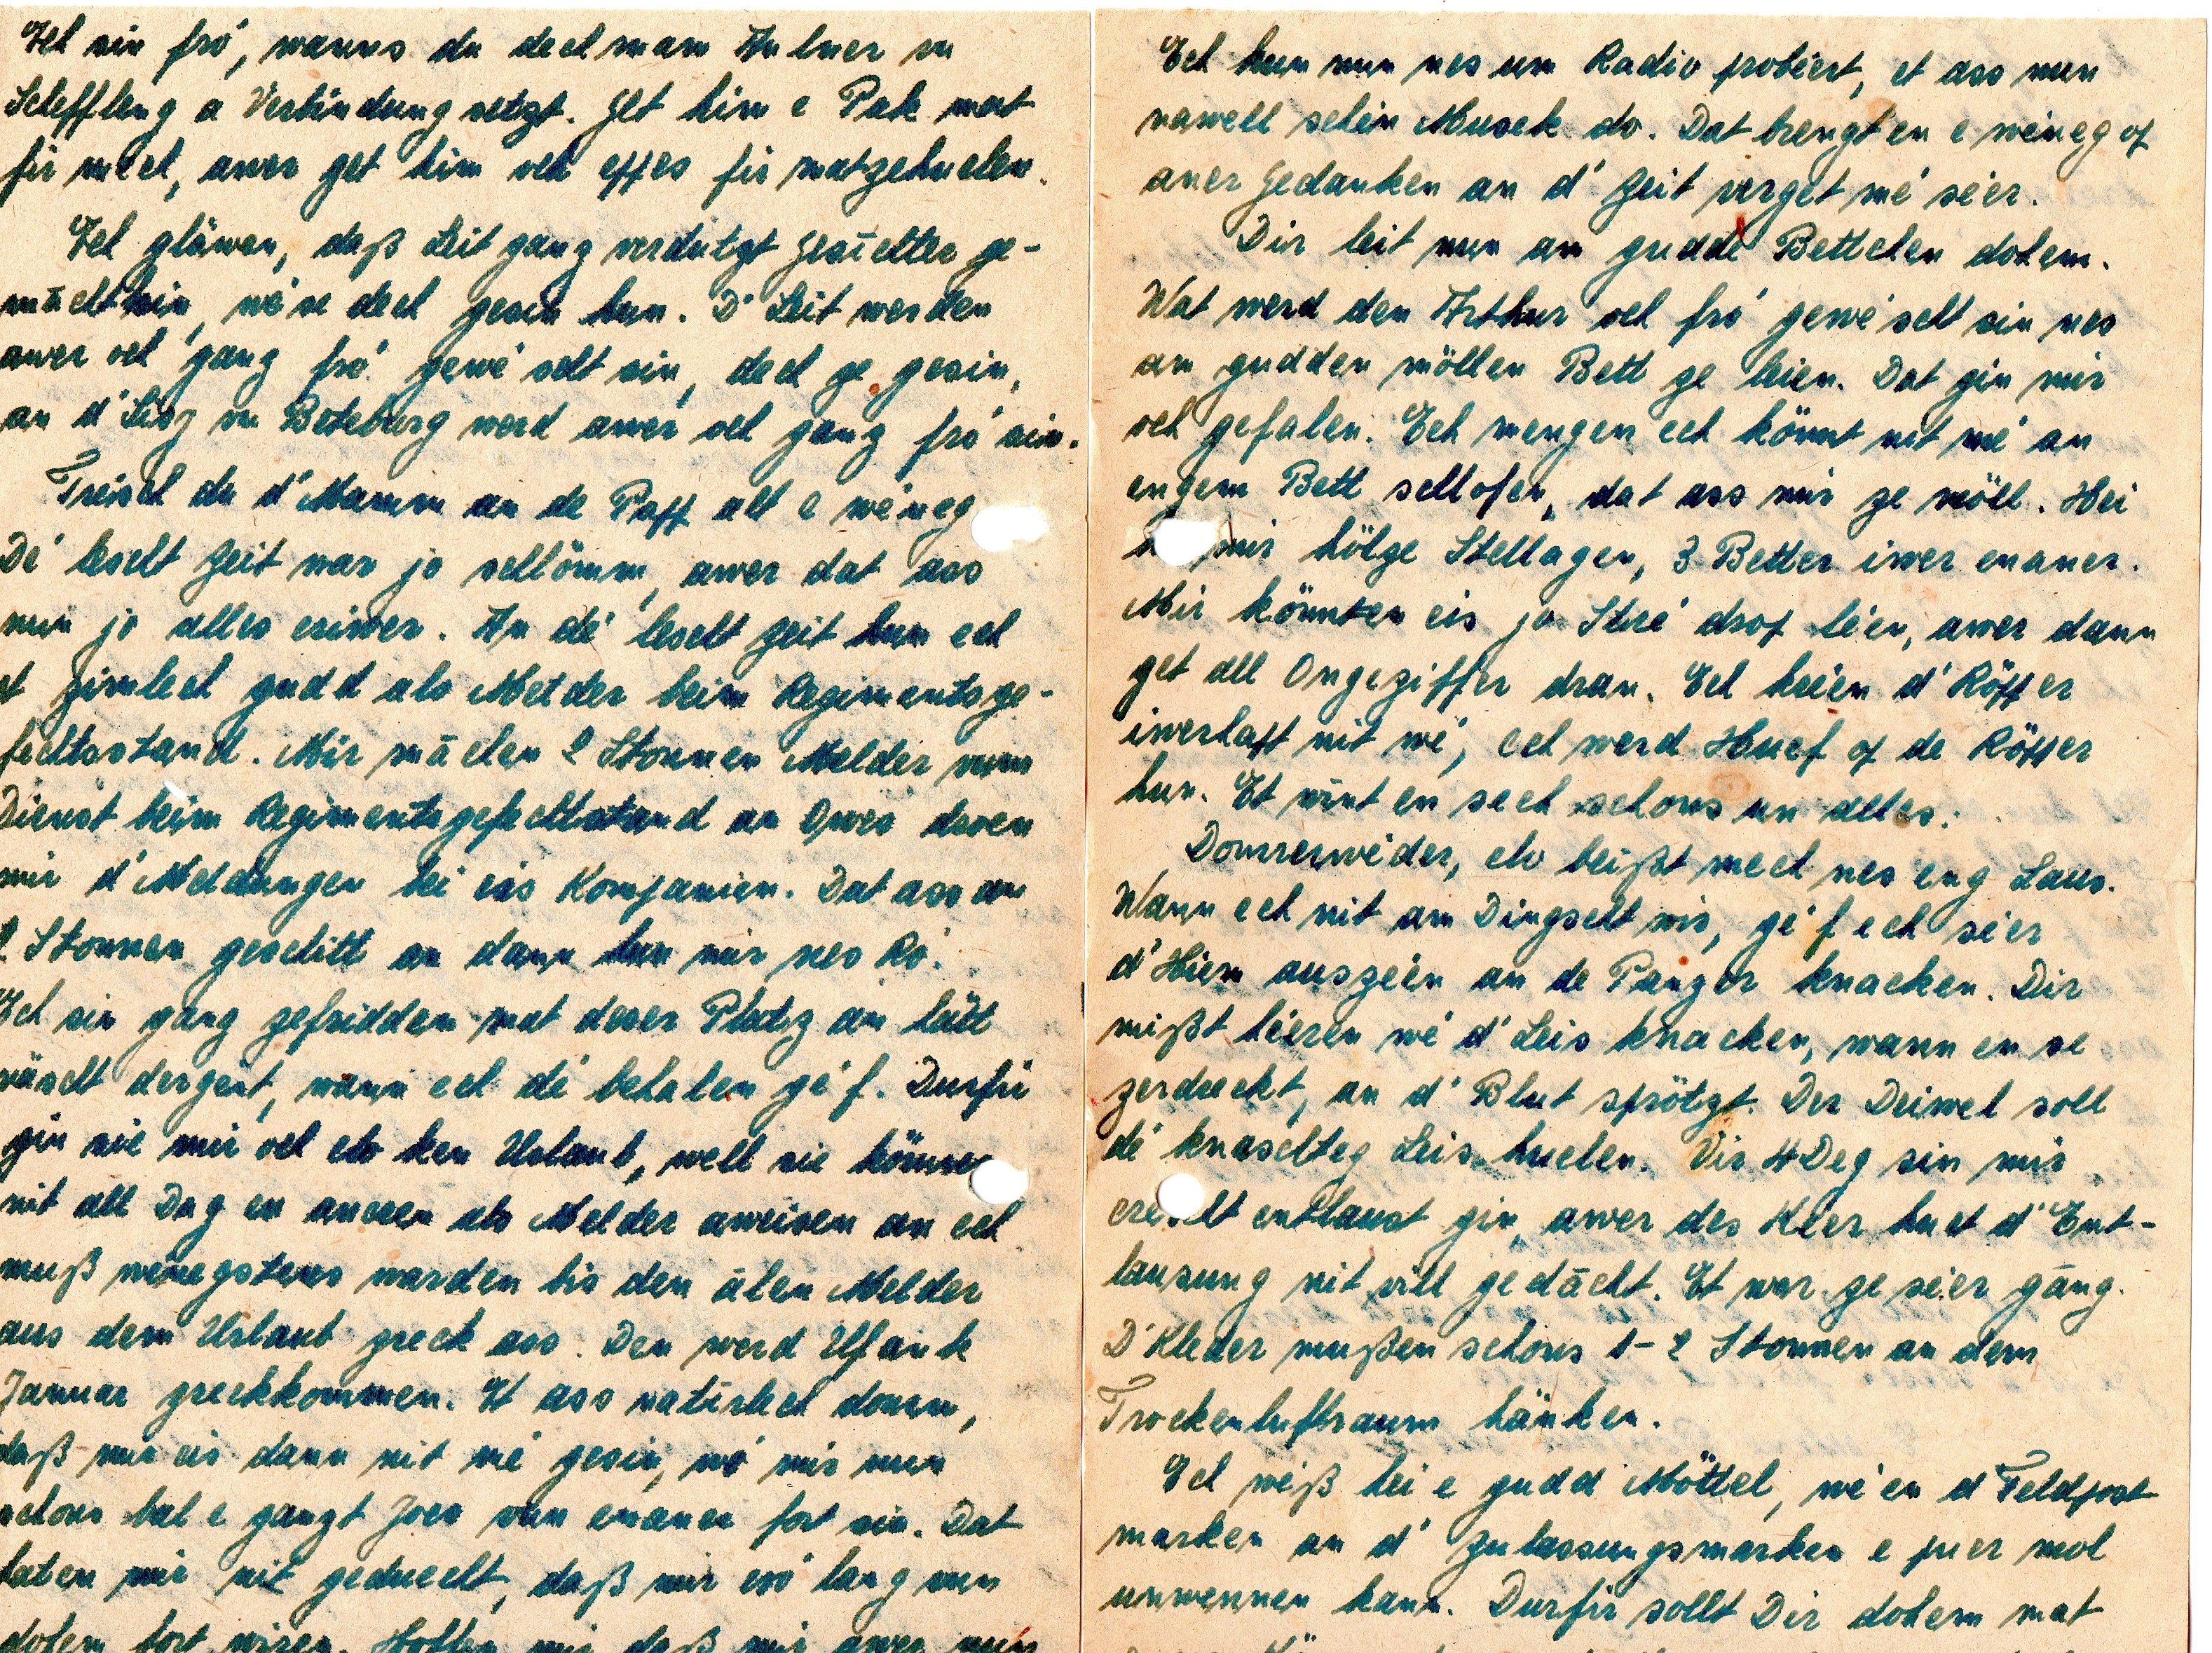 Ech sin fró, wanns du dech mam Hulner vu
Scheffleng a Verbindung setzt. Get him e Pak mat
fir mech, awer get him och eppes fir matzehuelen.
Ech gläwen, daß Leit ganz verdutzt Gesiichter ge-
mächt hin, wé se dech gesin hun. D'Leit werden
awer och ganz fró gewéscht sin, dech ze gesin,
an d'Lisy vu Beteburg werd awer och ganz fró sin.
Treischt du d'Mamm an de Papp alt e wéneg
Dé lescht Zeit war jo schlömm, awer dat ass
nun jo alles eriwer. An dé lescht Zeit hun ech
et zimlech gudd als Melder beim Regimentsge-
fechtsstand. Mir mächen 2 Stonnen Melder vum
Dienst beim Regimentsgefechtsstand an Owes droen
mir d'Meldungen bei eis Kompanien. Dat ass an
2 Stonnen geschitt an dann hun mir nes Ró.
Ech sin ganz zefridden mat deser Platz an hätt
näscht dergént, wann ech dé behalen géf. Durfir
gin sie mir och elo ken Urlaub, well sie können
nit all Dag en aneren als Melder aweisen an ech
muß wénegstens warden bis den alen Melder
aus dem Urlaub zreck ass. Den werd Ufank
Januar zreckkommen. Et ass natirlech domm,
daß mir eis dann nit mé gesin, wó mir nun
schons bal e ganzt Joer vun enaner fort sin. Dat
haten mir nit geduecht, daß mir esó lang vun
dohem fort wiren. Hoffen mir daß mir awer nun
Ech hun nun nes um Radio probéert, et ass nun
nawell schéin Musek do. Dat brengt en e wéineg op
aner Gedanken an d'Zeit verget mé séier.
Dir leit nun an gudde Bettelen dohem.
Wat werd den Arthur och fró gewéscht sin nes
am gudden möllen Bett ze leien. Dat gin mir
och gefalen. Ech mengen ech könnt nit mé an
engem Bett schlofen, dat ass mir ze möll. Hei
mir hölze Stellagen, 3 Better iwer enaner.
Mir könnten eis jo Stré drop léen, awer dann
get all Ongeziffer dran. Ech kréien d'Röpper
iwerhapt nit wé, ech werd Huef op de Röpper
hun. Et wint en sech schons un alles.
Donnerwéder, elo beißt mech nes eng Laus.
Wann ech nit am Dingscht wir, géf ech séier
d'Hiem auszéen an de Panzer knacken. Dir
mißt héieren wé d'Leis knacken, wann en se
zerdreckt, an d'Blut sprötzt. Der Deiwel soll
dé knaschteg Leis huelen. Vir 4 Deg sin mir
entlaust gin, awer des Keer huet d'Ent-
lausung nit vill gedächt. Et war ze séier gäng.
D'Kleder mußen schons 1-2 Stonnen an dem
Trockenluftraum hänken.
Ech weiß hei e gudd Möttel, wé en d'Feldpost
marken an d'Zulassungsmarken e puer mol
unwennen kann. Durfir sollt Dir dohem mat